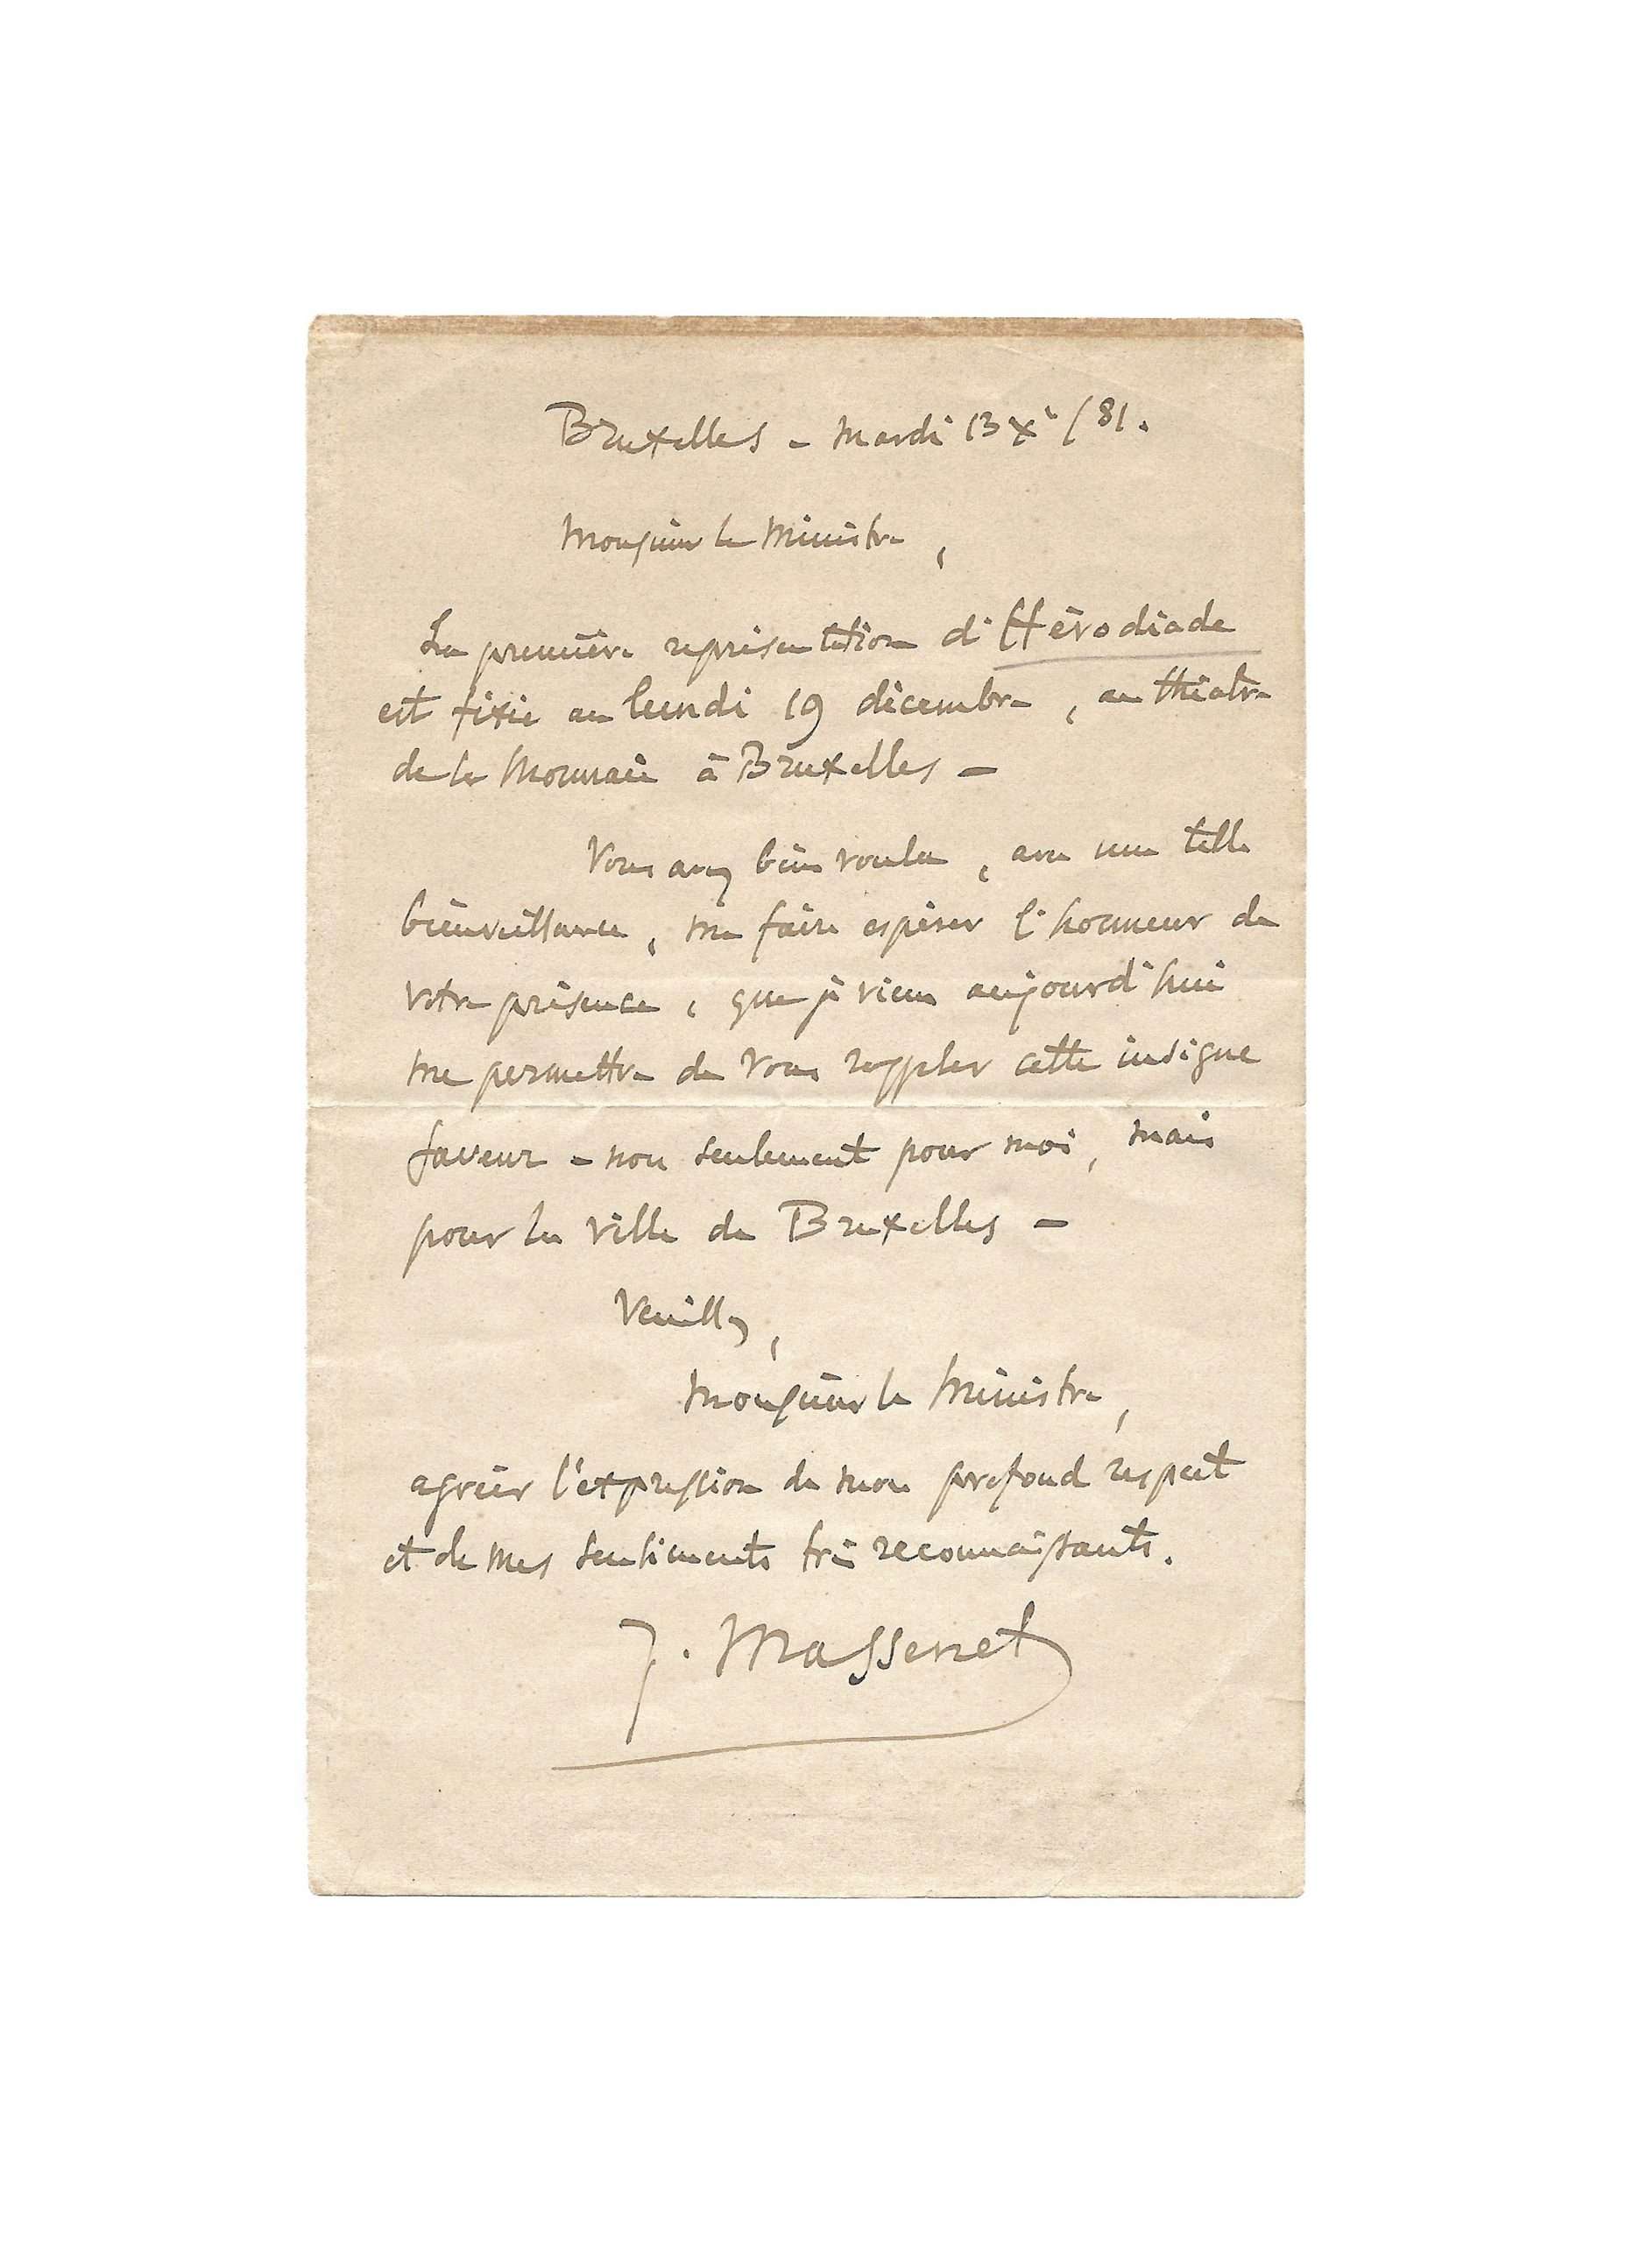 Bruxelles - Mardi 13 Xe/81.
Monsieur le Ministre,
La première représentation d'Hérodiade
est fixée au lundi 19 décembre, au théâtre
de la Monnaie à Bruxelles -
Vous avez bien voulu, avec une telle
bienveillance, me faire espérer l'honneur de
votre présence, que je viens aujourd'hui
me permettre de vous rappeler cette insigne
faveur - non seulement pour moi, mais
pour la ville de Bruxelles -
Veuillez,
Monsieur le Ministre,
agréer l'expression de mon profond respect
et de mes sentiments très reconnaissants.
J. Massenet